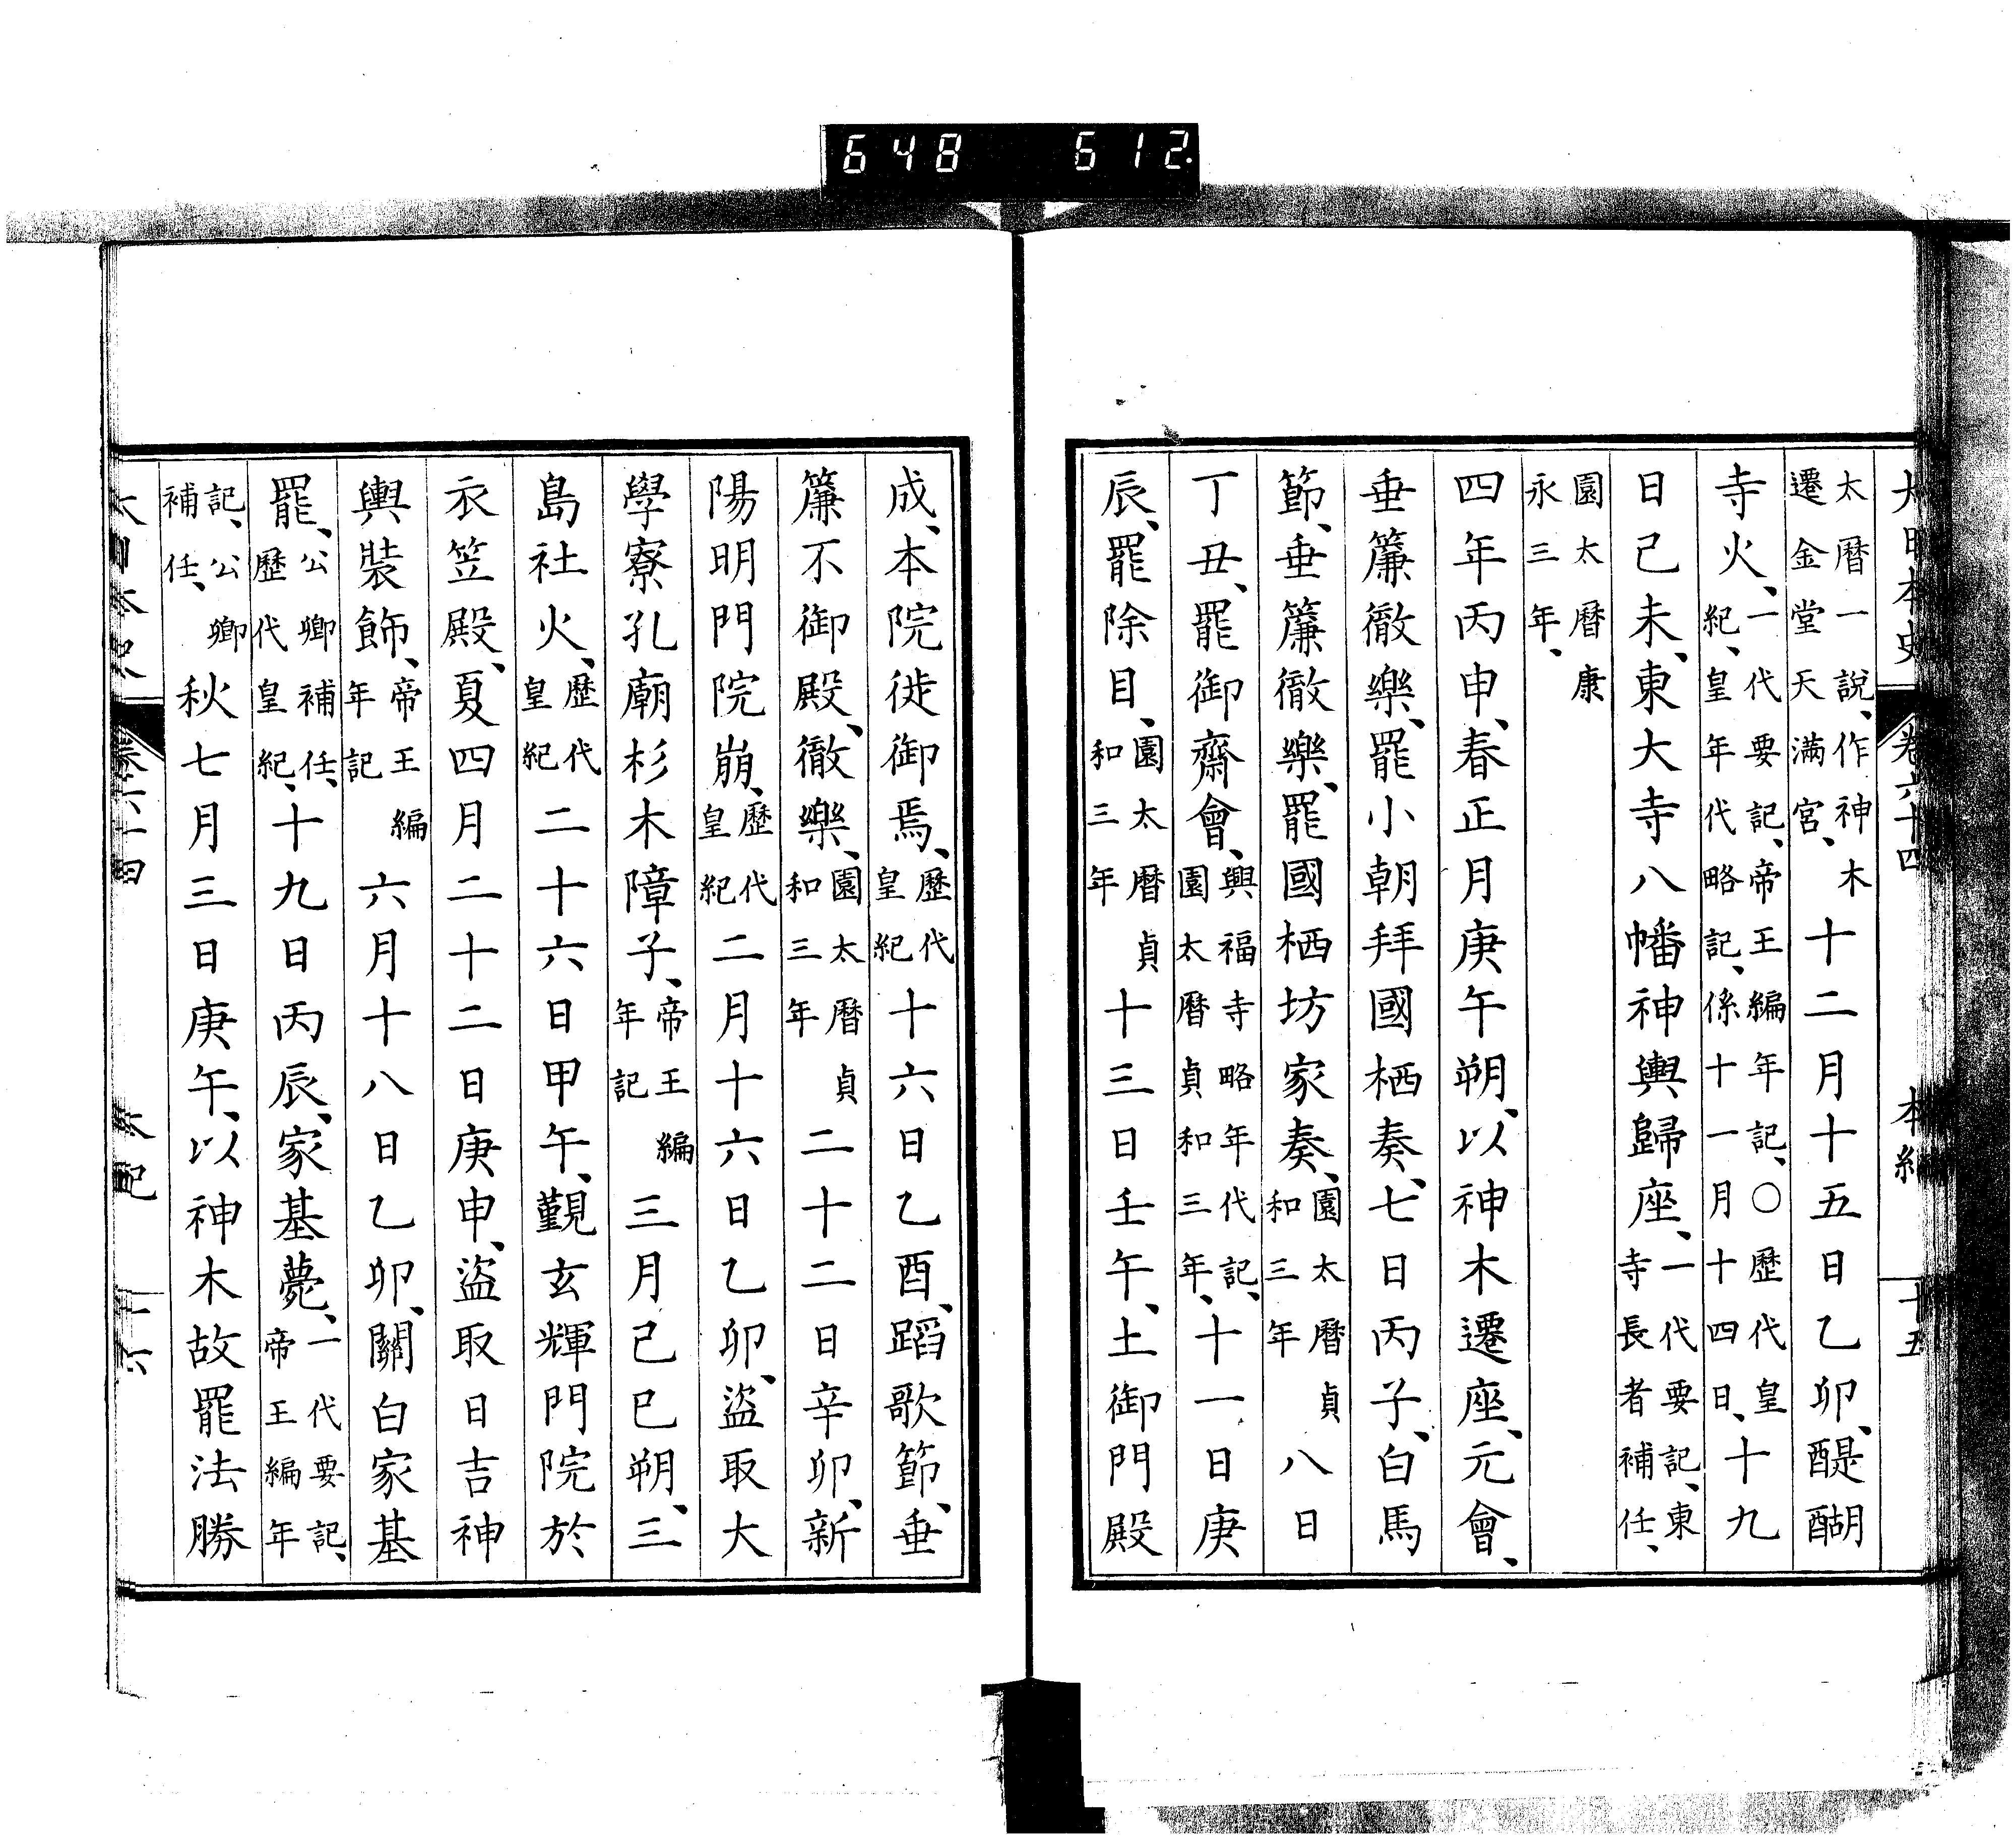 648 612
大日本史 卷六十四 本紀 十五
太曆一說、作神木遷金堂天滿宮、十二月十五日乙卯、醍醐
寺火、一代要記、帝王編年記、○歷代皇紀、皇年代略記、係十一月十四日、十九
日己未、東大寺八幡神輿歸座、一代要記、東寺長者補任、
園太曆康永三年、
四年丙申、春正月庚午朔、以神木遷座、元會、
垂簾徹樂、罷小朝拜國栖奏、七日丙子、白馬
節、垂簾徹樂、罷國栖坊家奏、園太曆貞和三年八日
丁丑、罷御齋會、興福寺略年代記、園太曆貞和三年、十一日庚
辰、罷除目、園太曆貞和三年十三日壬午、土御門殿
成、本院徙御焉、歷代皇紀十六日乙酉、蹈歌節、垂
簾不御殿、徹樂、園太曆貞和三年二十二日辛卯、新
陽明門院崩、歷代皇紀二月十六日乙卯、盜取大
學寮孔廟杉木障子、帝王編年記三月己巳朔、三
島社火、歷代皇紀二十六日甲午、覲玄輝門院於
衣笠殿、夏四月二十二日庚申、盜取日吉神
輿裝飾、帝王編年記六月十八日乙卯、關白家基
罷、公卿補任、歷代皇紀、十九日丙辰、家基薨、一代要記、帝王編年
記、公卿補任、秋七月三日庚午、以神木故罷法勝
大日本史 卷六十四 本紀 十六